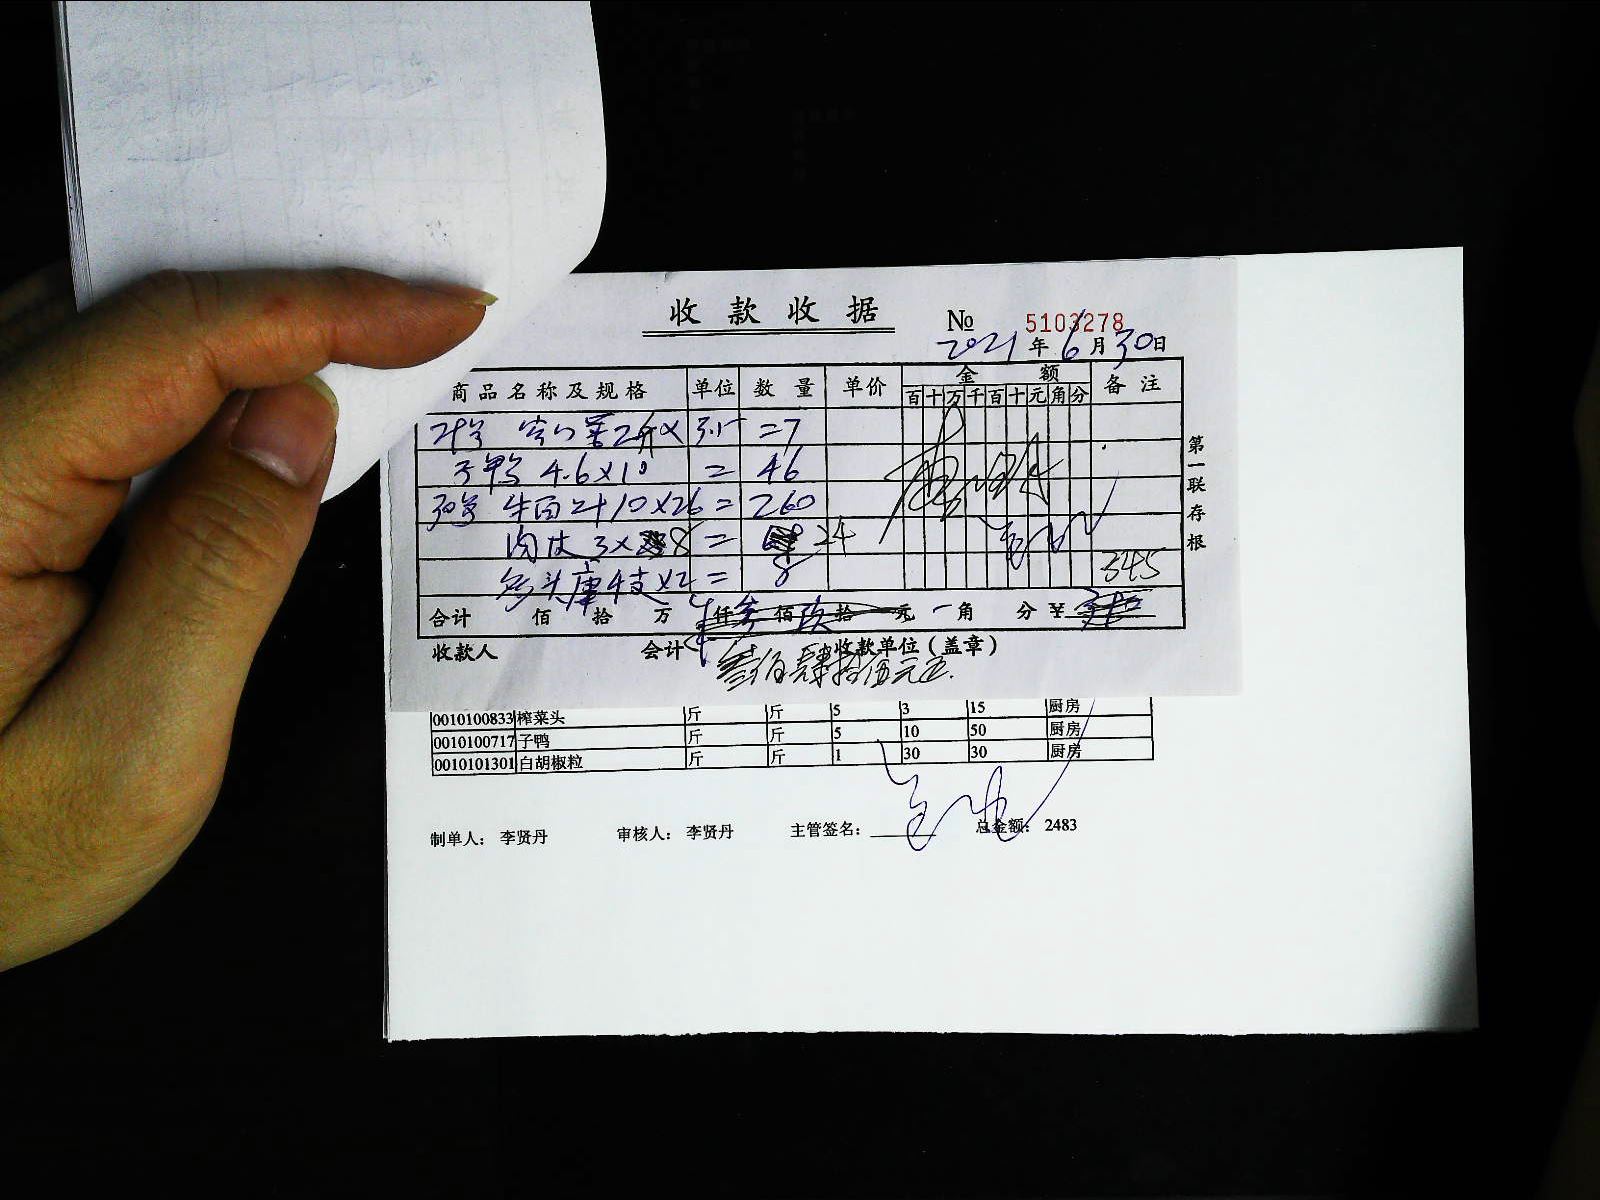 收款收据
№ 5103278
2021年6月30日
商品名称及规格 单位 数量 单价 金额 备注
百十万千百十元角分
2斤× 3.5 =7
子鸭 4.6×10 = 46
10×26= 260
3× 8 = 24
4支×2= 8
345
合计 佰 拾 万 仟 佰 玖 拾 元 角 分 ¥
收款人 会计 收款单位(盖章)
叁佰肆拾伍元正.
第一联存根
0010100833 榨菜头 斤 斤 5 3 15 厨房
0010100717 子鸭 斤 斤 5 10 50 厨房
0010101301 白胡椒粒 斤 斤 1 30 30 厨房
制单人: 李贤丹 审核人: 李贤丹 主管签名: 总金额: 2483